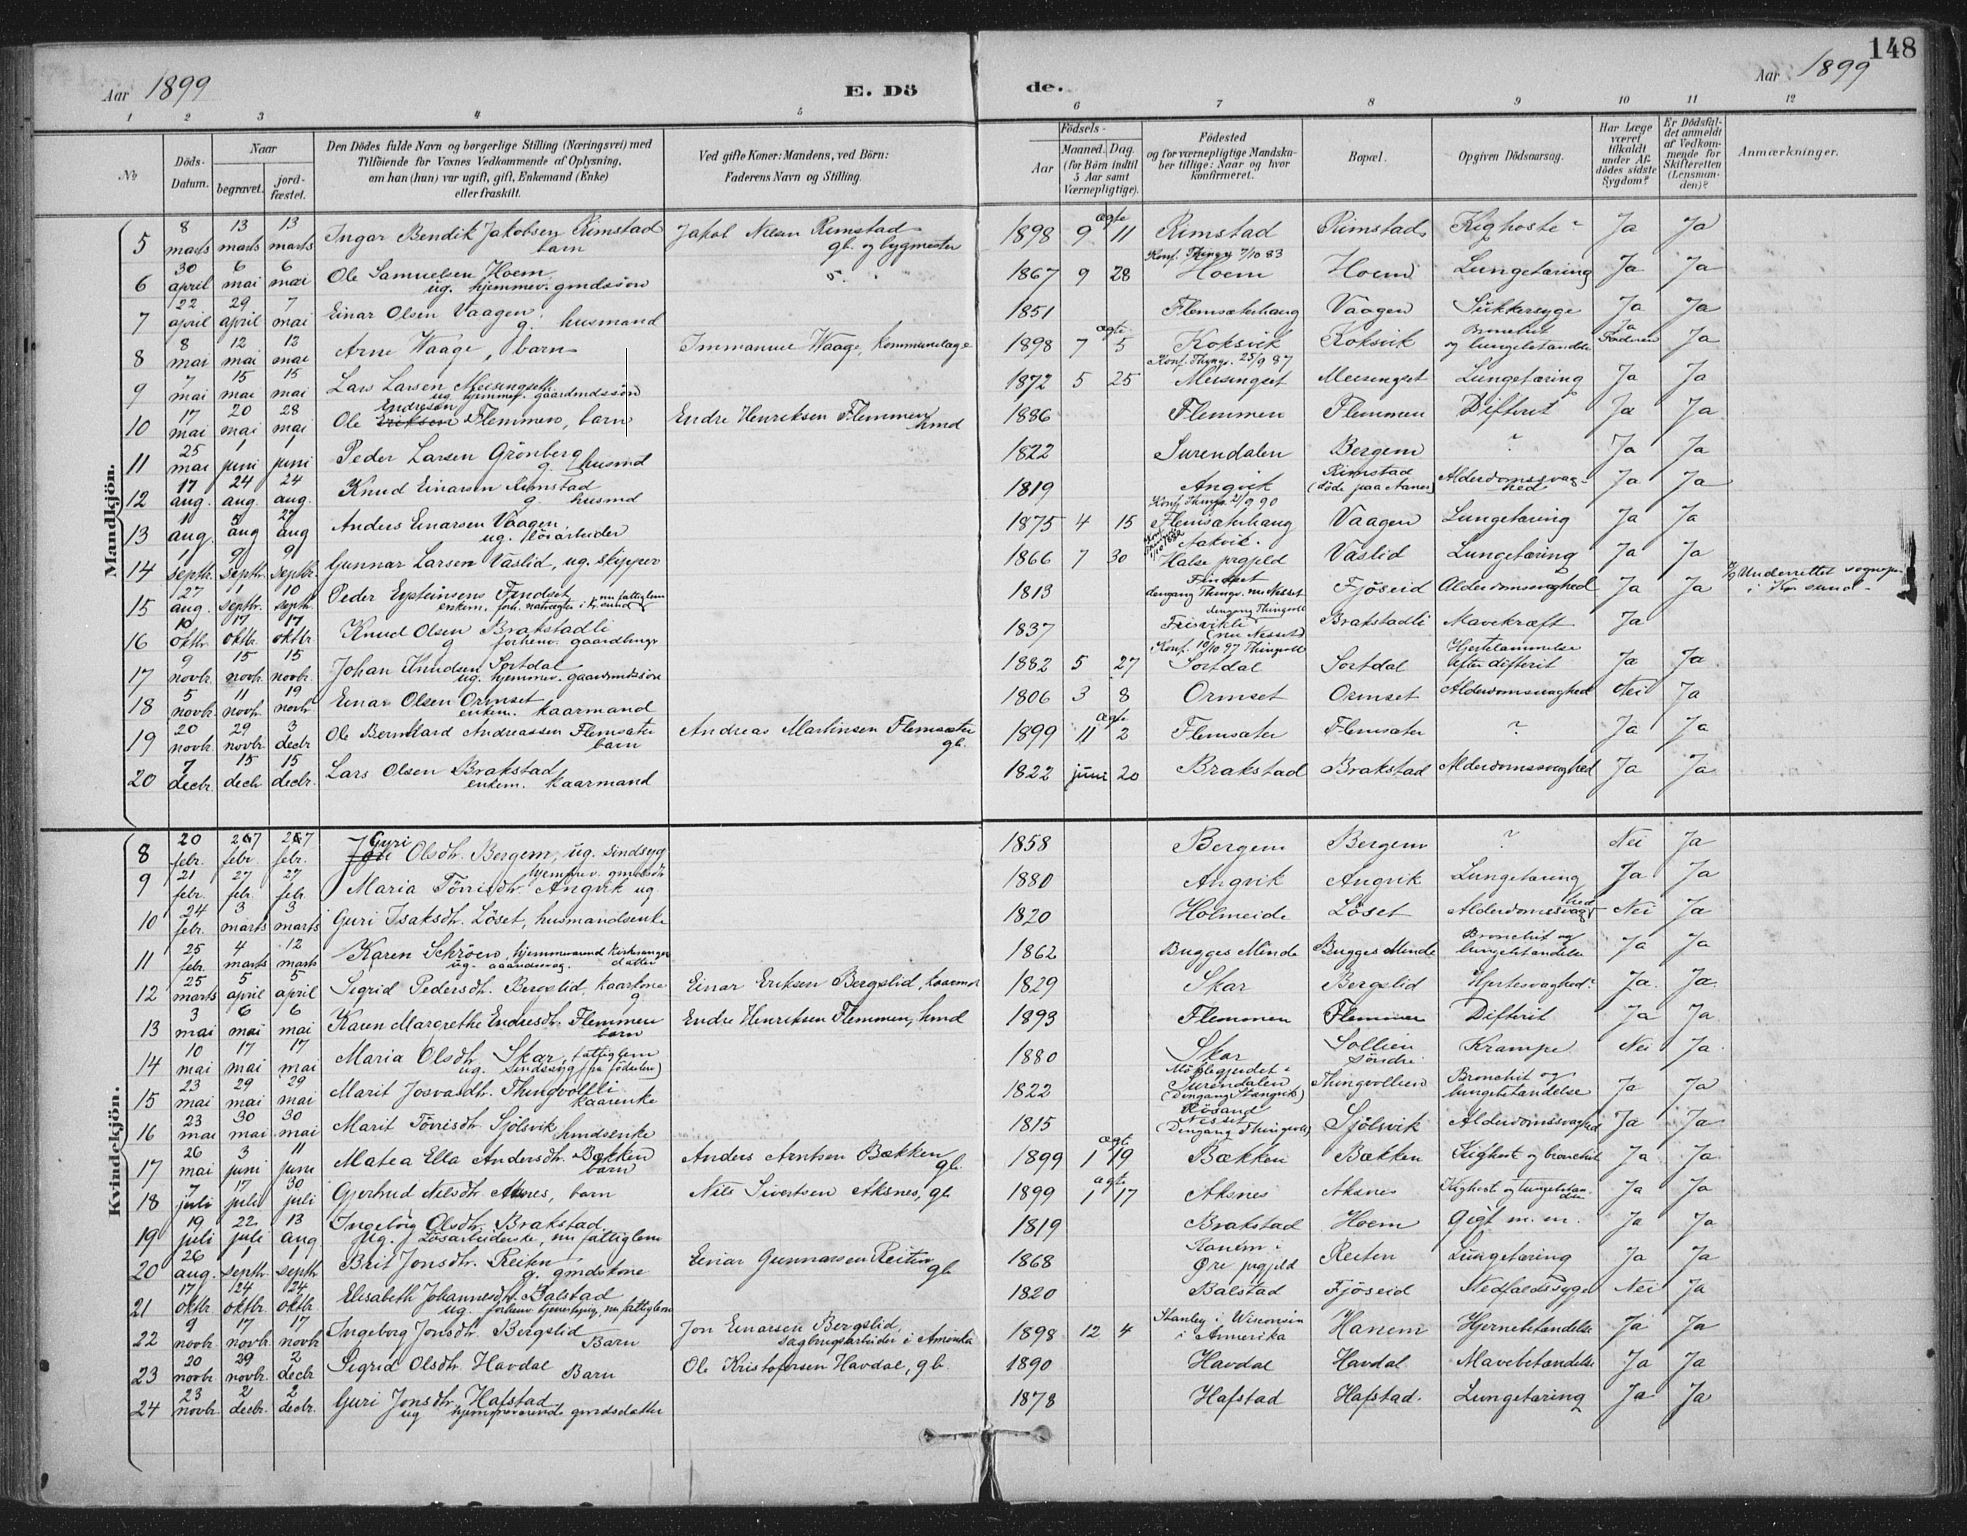 148
Aar 1899 E. Döde. Aar 1899
1 2 3 4 5 6 7 8 9 10 11 12
No
Döds-Datum.
Naar
begravet.
jordfæstet.
Den Dödes fulde Navn og borgerlige Stilling (Næringsvei) med Tilföiende for Voxnes Vedkommende af Oplysning, om han (hun) var ugift, gift, Enkemand (Enke) eller fraskilt.
Ved gifte Koner: Mandens, ved Börn: Faderens Navn og Stilling.
Födsels-
Aar
Maaned. Dag.
(for Börn indtil 5 Aar samt Værnepligtige).
Födested og for værnepligtige Mandskaber tillige: Naar og hvor konfirmeret.
Bopæl.
Opgiven Dödsaarsag.
Har Læge været tilkaldt under Afdödes sidste Sygdom?
Er Dödsfaldet anmeldt af Vedkommende for Skifteretten (Lensmanden)?
Anmærkninger.
Mandkjön.
5 8 marts 13 marts 13 marts Ingar Bendik Jakobsen Rimstad barn Jakob Nilsen Rimstad gb. og bygmester 1898 9 ægte 11 Rimstad Rimstad Kighoste Ja Ja
6 30 april 6 mai 6 mai Ole Samuelsen Hoem ug. hjemmev. gmdssön 1867 9 28 Konf. Thingv. 7/10 83 Hoem Hoem Lungetæring Ja Ja
7 22 april 29 april 7 mai Einar Olsen Vaagen g. husmand 1851 Flemsæterhaug Vaagen Sukkersyge Ja Ja
8 8 mai 12 mai 12 mai Arne Waage, barn Immanuel Waage, kommunelæge 1898 7 ægte 5 Koksvik Koksvik Bronchit og lungebetændelse Ja Faderen Ja
9 7 mai 15 mai 15 mai Lars Larsen Meisingseth ug. hjemmev. gaardmdssön 1872 5 25 Konf. Thingv. 25/9 87 Meisingset Meisingset Lungetæring Ja Ja
10 17 mai 20 mai 28 mai Ole Eriksen Endresen Flemmen, barn Endre Henriksen Flemmen hmd 1886 Flemmen Flemmen Difterit Ja Ja
11 25 mai 1 juni 1 juni Peder Larsen Grönberg g. husmd 1822 Surendalen Bergem ? Ja Ja
12 17 aug. 24 aug. 24 aug. Knud Einarsen Rimstad g. husmd 1819 Angvik Rimstad (döde paa Aanes) Alderdomssvaghed Ja Ja
13 1 aug. 5 aug 27 aug Anders Einarsen Vaagen, ug. lösarbeider 1875 4 15 Flemsæterhaug Vaagen Lungetæring Ja Ja
14 1 septbr. 9 septbr. 9 septbr. Gunnar Larsen Vaslid, ug. skipper 1866 7 30 Aakvik. Halse prgjeld Vaslid Lungetæring Ja Ja
15 27 aug. 11 septbr. 10 septbr. Peder Eysteinsens Fendset enkem. forh. natvægter i Kr.sund nu fattiglem 1813 Fendset dengang Thingv. nu Nesset Fjöseid Alderdomssvaghed Ja Ja Underrettet sognepr. i Kr. sund
16 10 oktbr. 17 oktbr. 17 oktbr. Knud Olsen Brakstadli g forhenv. gaardbruger 1837 dengang Thingvold Frisvikli (nu Nesset) Brakstadli Mavekræft Ja
17 9 novbr. 15 novbr. 15 novbr. Johan Knudsen Sortdal ug. hjemmev. gaardmdssön 1882 5 27 Konf. 10/10 97 Thingvold Sortdal Sortdal Hjertelammelse efter difterit Ja Ja
18 5 novbr. 11 novbr. 19 novbr Einar Olsen Ormset enkem. kaarmand 1806 3 8 Ormset Ormset Alderdomssvaghed Nei Ja
19 20 novbr. 29 novbr. 3 decbr Ole Bernhard Andreassen Flemsæter barn Andreas Martinsen Flemsæter gb. 1899 11 ægte 2 Flemsæter Flemsæter ? Ja Ja
20 7 decbr. 15 decbr 15 decbr. Lars Olsen Brakstad, enkem. kaarmand 1822 juni 20 Brakstad Brakstad Alderdomssvaghed Ja Ja
Kvindekjön.
8 20 febr. 27 febr. 27 febr. Guri Olsdtr. Bergem, ug. sindssyg hjemmev. gmdsdtr 1858 Bergem Bergem ? Nei Ja
9 21 febr. 27 febr. 27 febr Maria Törrisdtr. Angvik ug 1880 Angvik Angvik Lungetæring Ja Ja
10 24 febr. 3 marts 3 marts Guri Isaksdtr. Löset, husmandsenke 1820 Holmeide Löset Alderdomssvaghed Nei Ja
11 25 febr. 4 marts 12 marts Karen Schröen, hjemmeværende kirkesanger datter ug. aandssvag. 1862 Bugges Minde Bugges Minde Bronchit og lungebetændelse Ja Ja
12 25 marts 5 april 5 april Sigrid Pedersdtr. Bergslid, kaarkone g Einar Eriksen Bergslid, kaarmd 1829 Skar Bergslid Hjertesvaghed Ja. Ja.
13 3 mai 6 mai 6 mai Karen Margrethe Endresdtr. Flemmen barn Endre Henriksen Flemmen, hmd 1893 Flemmen Flemmen Difterit Ja Ja
14 10 mai 17 mai 17 mai Maria Olsdtr. Skar, fattiglem ug. (sindssyg fra födselen) 1880 Skar Sollien söndre Krampe Nei Ja.
15 23 mai 29 mai 29 mai Marit Josvasdtr. Thingvollli kaarenke 1822 Surendalen (Dengang Stangvik) Thingvollien Bronchit og lungebetændelse Ja Ja
16 23 mai 30 mai 30 mai Marit Törrisdtr. Sjölsvik hmdsenke 1815 Rösand Nesset (Dengang Thingvold) Sjölsvik Alderdomssvaghed Ja Ja
17 26 mai 3 juni 11 juni Matea Ella Andersdtr. Bækken barn Anders Arntsen Bækken gb. 1899 1 ægte 19 Bækken Bækken Kighoste og bronchit Ja. Ja.
18 7 juli 17 juli 30 juli Gjertrud Nilsdtr Aksnes, barn Nils Sivertsen Aksnes, gb. 1899 1 ægte 17 Aksnes Aksnes Kighoste og lungebetændelse Ja Ja
19 19 juli 22 juli 13 aug Ingeborg Olsdtr. Brakstad. ug. Lösarbeiderske, nu fattiglem 1819 Brakstad Hoem Gigt m. m. Ja Ja
20 26 aug. 1 septbr. 1 septbr Brit Jonsdtr. Reiten g. gmdskone Einar Gunnarsen Reiten gb 1868 Øre prgjeld Reiten Lungetæring Ja Ja
21 17 oktbr. 24 oktbr. 24 oktbr Elisabeth Johannesdtr. Balstad ug. forhenv. tjenestepige, nu fattiglem 1820 Balstad Fjöseid Nedfaldssyge Nei Ja
22 9 novbr. 17 novbr. 17 novbr Ingeborg Jonsdtr. Bergslid Barn Jon Einarsen Bergslid, sagbrugsarbeider i Amerika 1898 12 4 Stanley i Wisconsin i Amerika Hanem Hjernebetændelse Ja Ja
23 20 novbr 29 novbr. 2 decbr Sigrid Olsdtr. Havdal Barn Ole Kristofersen Havdal, gb. 1890 Havdal Havdal Mavebetændelse Ja Ja
24 23 novbr. 2 decbr. 2 decbr. Guri Jonsdtr. Hafstad ug hjemmeværende gmdsdatter 1878 Hafstad Hafstad. Lungetæring Ja Ja